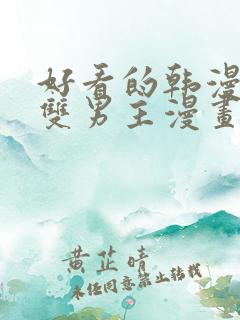 好看的韩漫
雙男主漫畫
黄芷晴
未经同意禁止转载